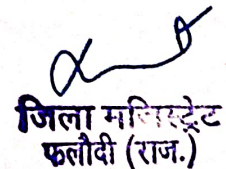 जिला मजिस्ट्रेट
फलौदी (राज.)